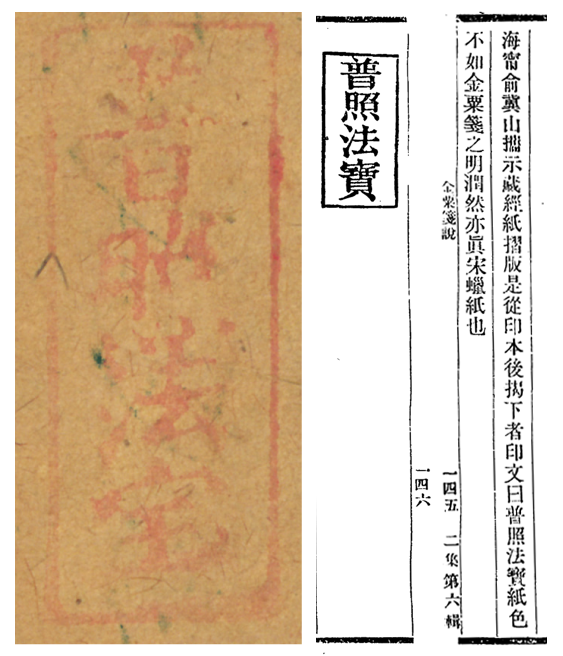 海甯俞冀山攜示藏經紙摺版是從印本後揭下者印文曰普照法寶紙色
不如金粟箋之明潤然亦眞宋蠟紙也
金粟箋說
一四五 二集第六輯
一四六
普照法寶
昭法宝